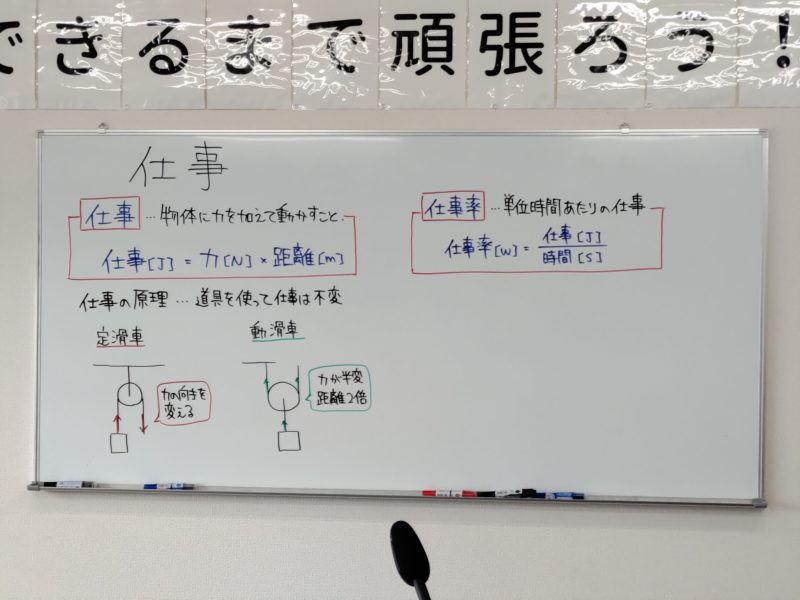 できるまで頑張ろう!
仕事
仕事…物体に力を加えて動かすこと。
仕事[J] = 力[N] × 距離[m]
仕事の原理…道具を使って仕事は不変
定滑車
力の向きを
変える
動滑車
力が半変
距離2倍
仕事率…単位時間あたりの仕事
仕事率[W] = 仕事[J]
時間[S]